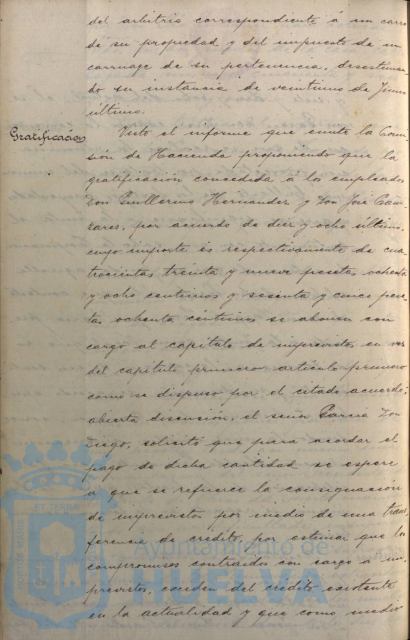 del arbitrio correspondiente á un carro
de su propiedad y del impuesto de un
carruage de su pertenencia, desestiman
do su instancia de veintiuno de Junio
último.
Gratificacion
Visto el informe que emite la Comi-
sión de Hacienda proponiendo que la
gratificación concedida á los empleados
Don Guillermo Hernandez y Don José
por acuerdo de diez y ocho último,
cuyo importe es respectivamente de cua
trocientas treinta y nueve pesetas, ochenta
y ocho centimos y sesenta y cinco pese
tas, ochenta centimos se abonen con
cargo al capítulo de imprevistos, en vez
del capítulo primero artículo primero
como se dispuso por el citado acuerdo;
abierta discusión, el señor Garcia Don
Diego, solicitó que para acordar el
pago de dicha cantidad se espere
a que se refuerce la consignación
de imprevistos por medio de una trans
ferencia de crédito, por estimar que los
compromisos contraidos con cargo a im
previstos, exceden del crédito existente
en la actualidad y que como medio
Ayuntamiento de
HUELVA